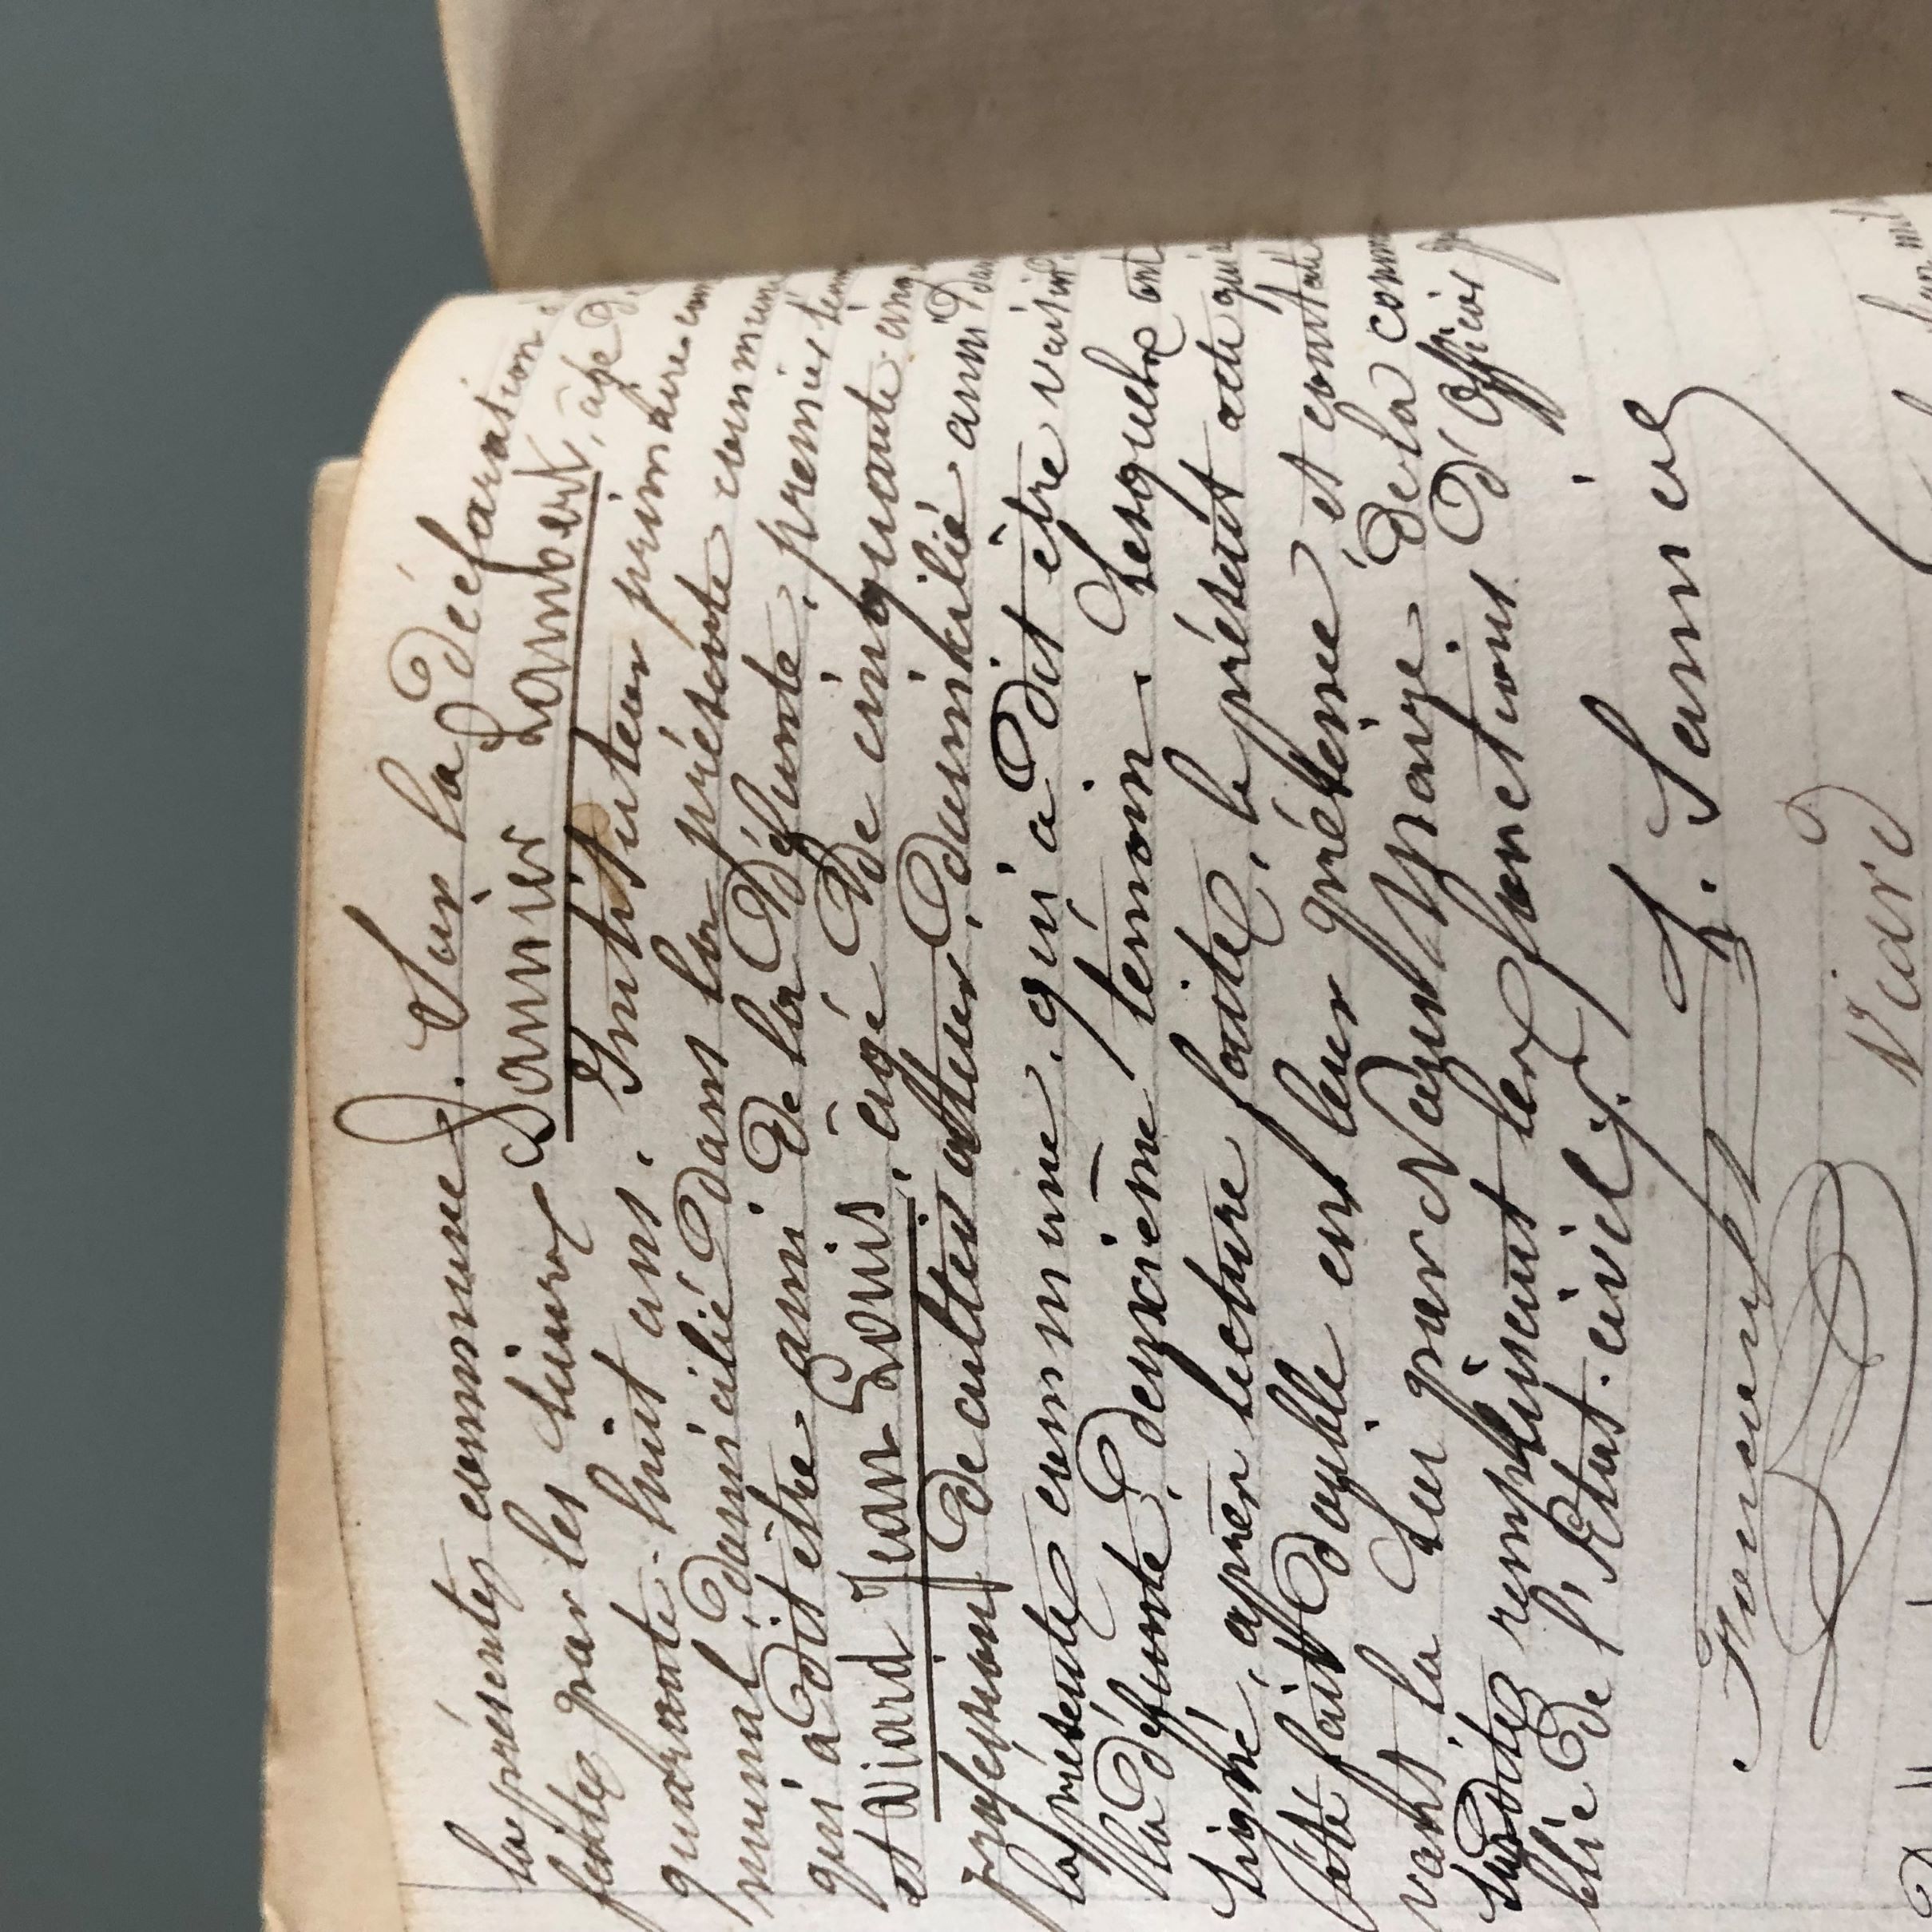 la présente commune. Sur la Déclaration
faite par les sieurs Sannier Lambert, âgé D
quarante-huit ans, Instituteur primaire com
munal, Domicilié Dans la présente commune
qui a Dit être ami De la Défunte, premier témoin
et Viard Jean Louis, âgé De cinquante cinq
profession De cultivateur, Domicilié ami Dans
la présente commune, qui a Dit être voisin
la Défunte, Deuxième témoin. Lesquels ont
signé, après lecture faite, le présent acte qui
été fait Double en leur présence et constaté
vant la Loi par Nous Maire De la comm
susdite remplissant les fonctions D'Officier
blic De l'Etat-civil.
L. Sannier
Viard